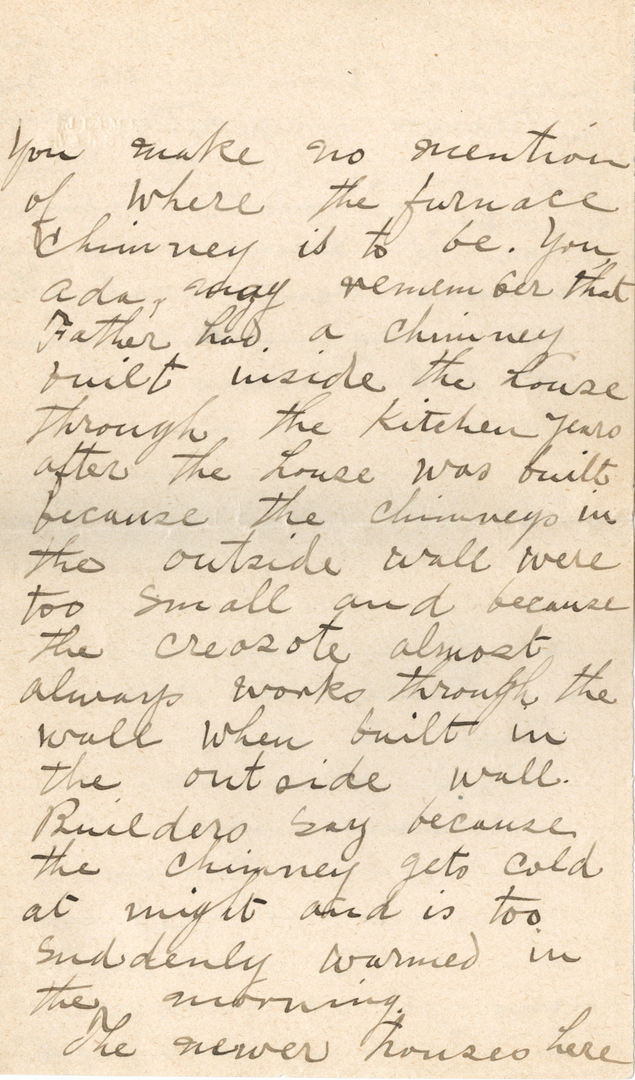 You make no mention
of where the furnace
chimney is to be. You,
Ada, may remember that
Father had a chimney
built inside the house
through the kitchen years
after the house was built
because the chimneys in
the outside wall were
too small and because
the creosote almost
always works through the
wall when built in
the outside wall.
Builders say because
the chimney gets cold
at night and is too
suddenly warmed in
the morning.
The newer houses here